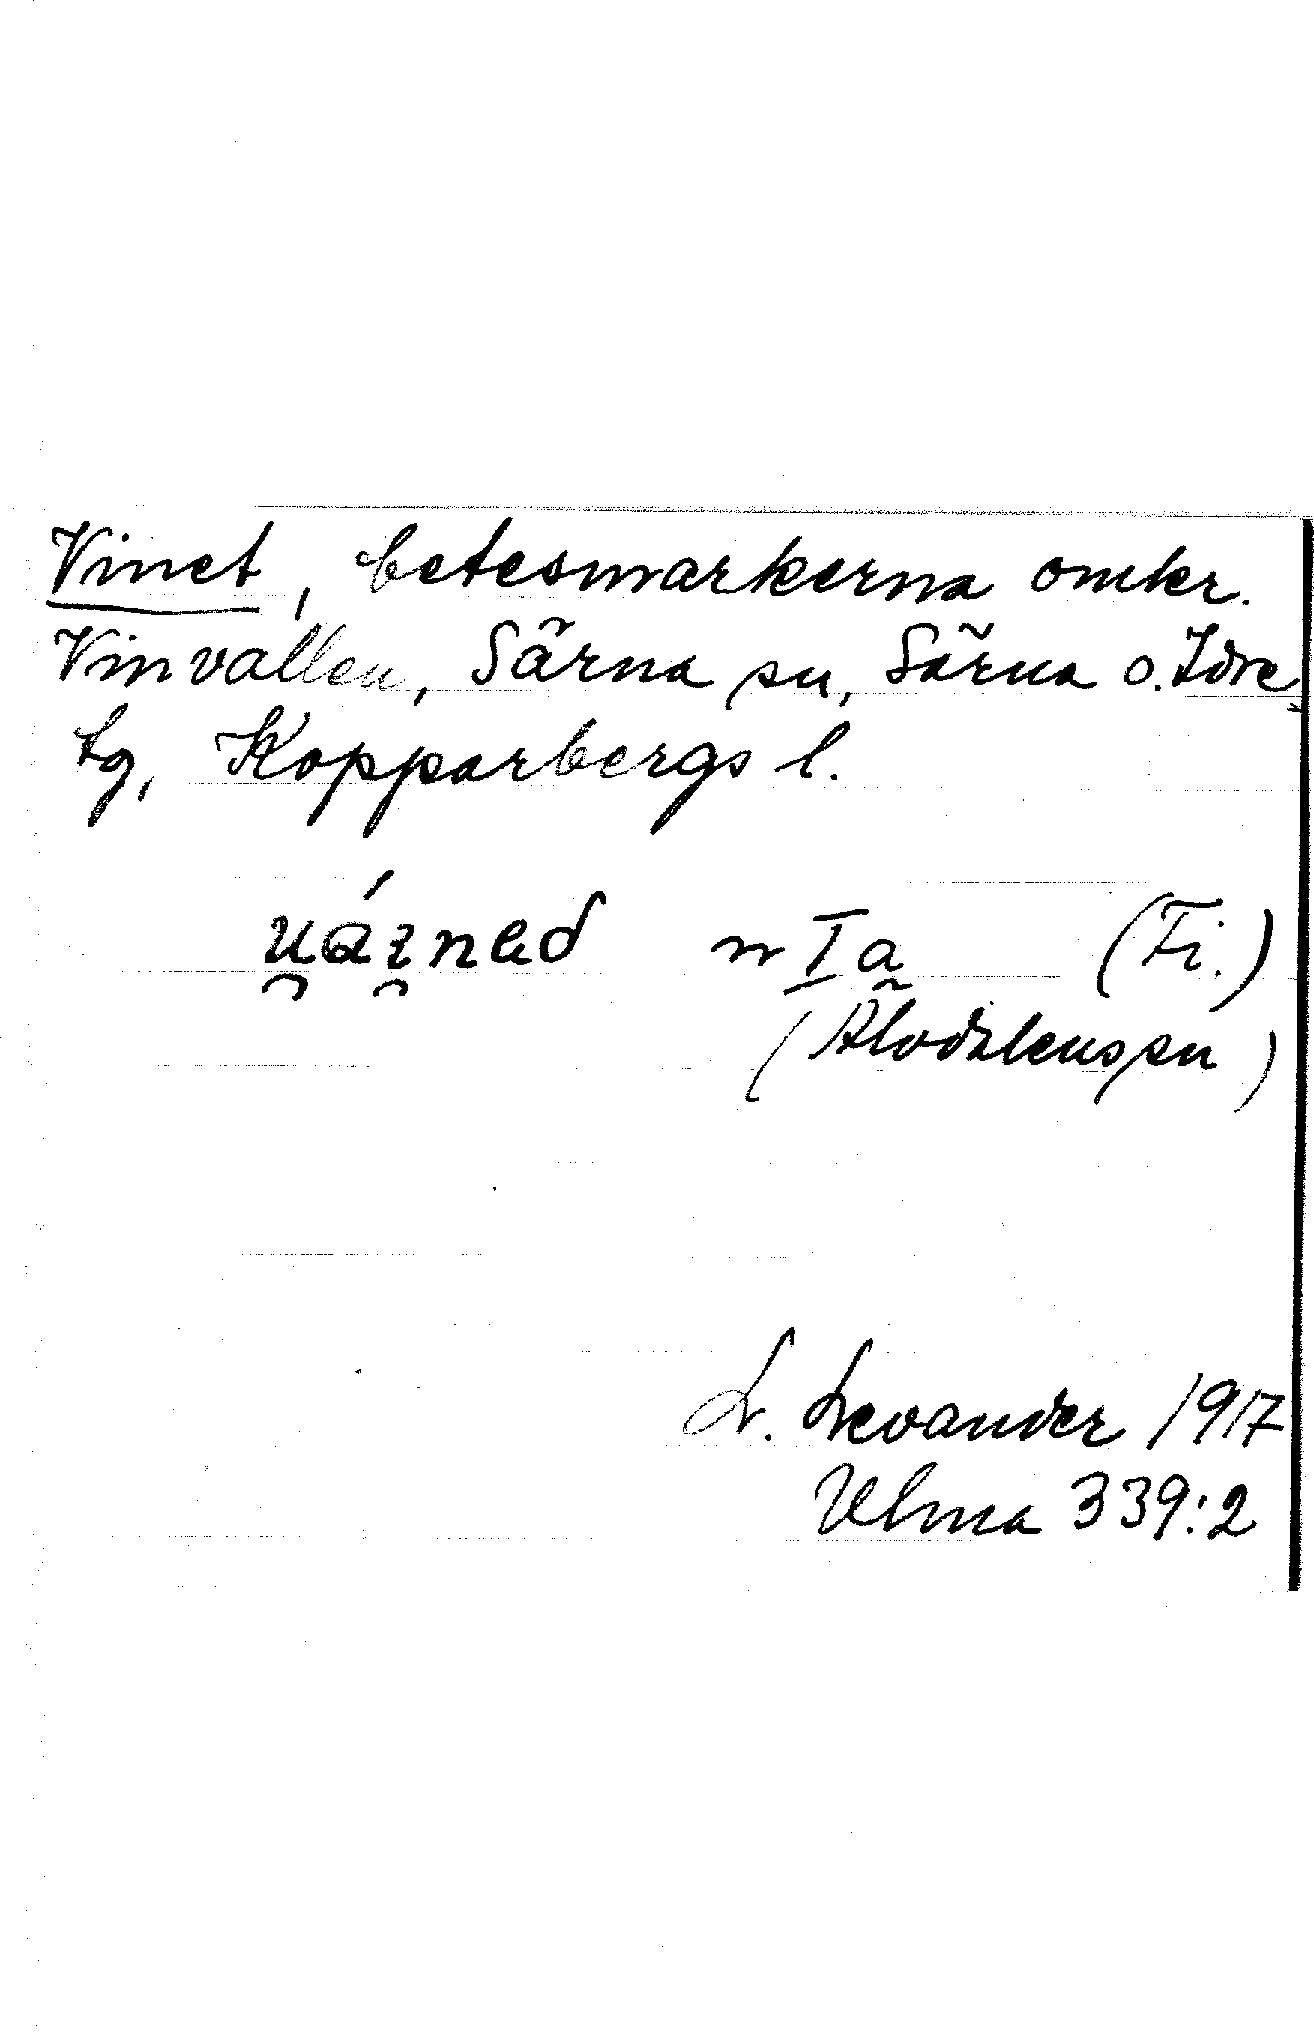 Vinet, betesmarkerna omkr.
Vinvallen, Särna sn, Särna o. Idre
tg, Kopparbergs l.
n I a (Fi.)
(Älvdalens sn)
L. Levander 1917
Ulma 339:2